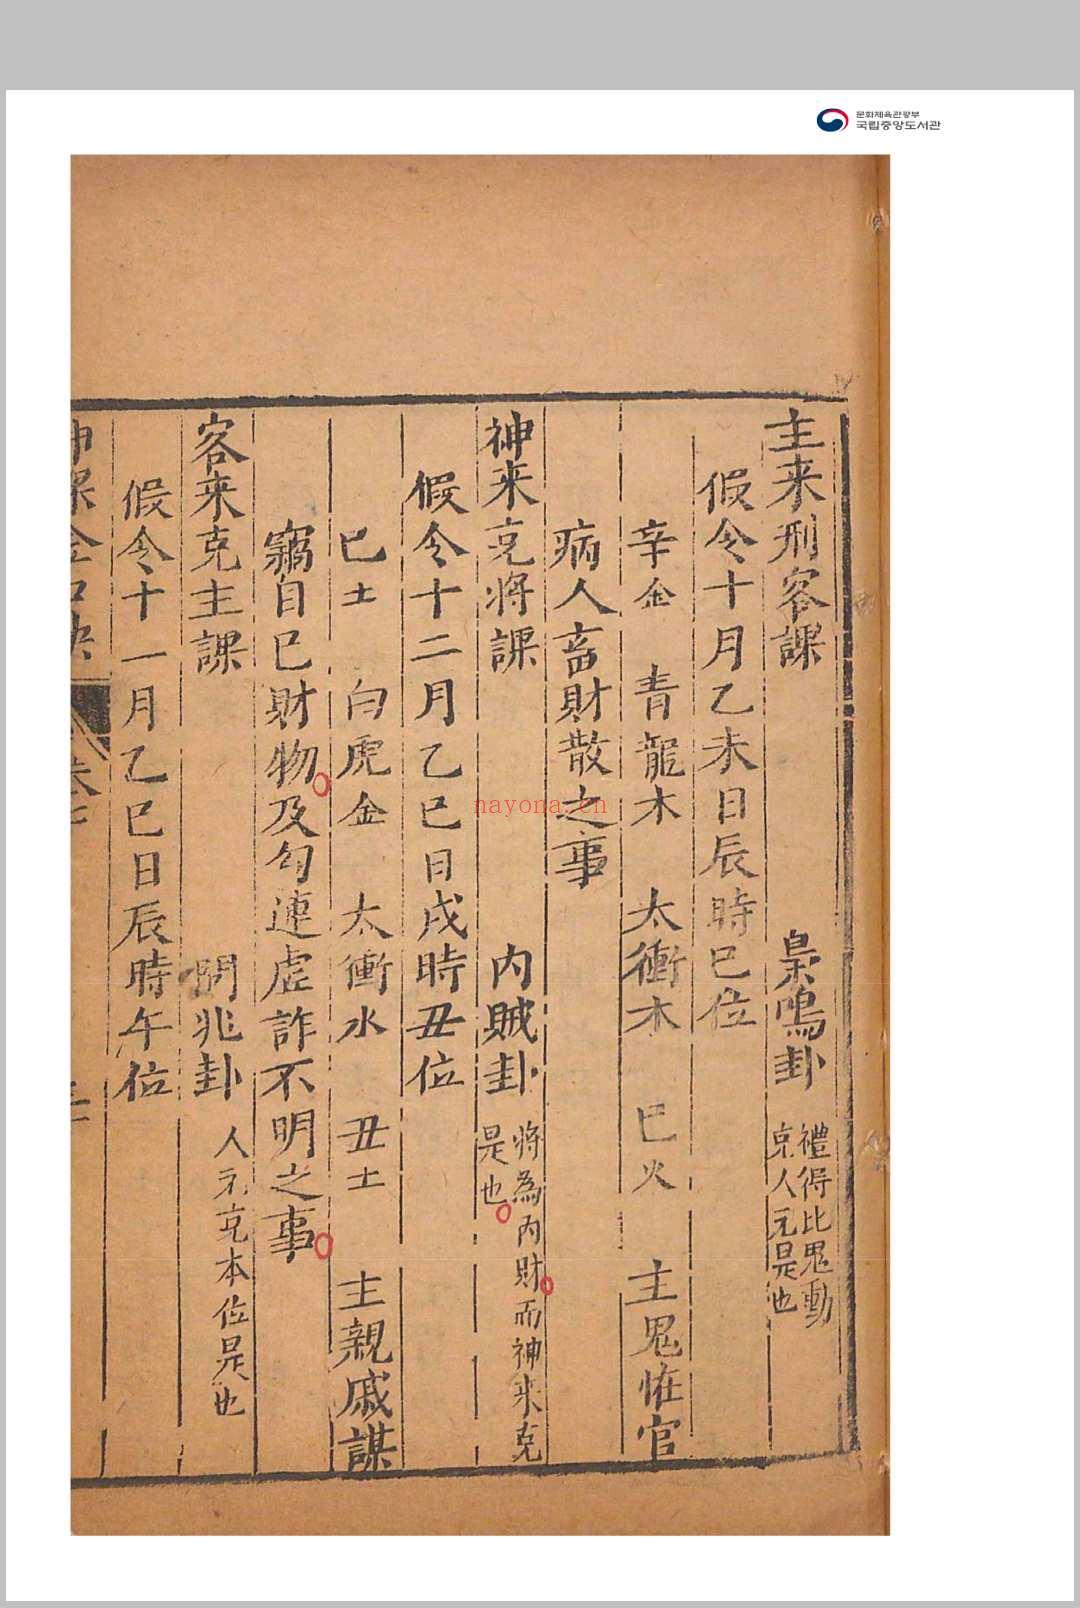 문화체육관광부
국립중앙도서관
主来刑客課 梟鳴卦 禮得比鬼動
京人元是也
假令十月乙未日辰時巳位
辛金 青龍木 太衝木 巳火 主鬼恠官
病人畜財散之事
神来克將課 内賊卦 將為内財而神来克
是也
假令十二月乙巳日戌時丑位
巳土 白虎金 太衝水 丑土 主親戚謀
竊自巳財物及勾連虚詐不明之事
客来克主課 卦 人元克本位是也
假令十一月乙巳日辰時午位
神課金口訣
nayona.cn